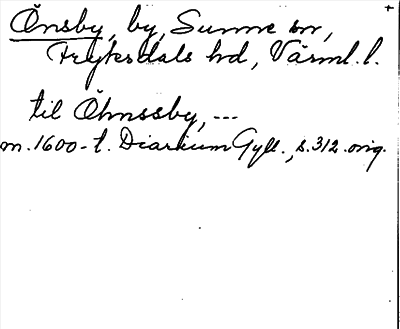 Önsby, by, Sunne sn,
Fryksdals hd, Värml. l.
til Öhnssby, ---
m. 1600-t. Diarium Gyll., s. 312. orig.